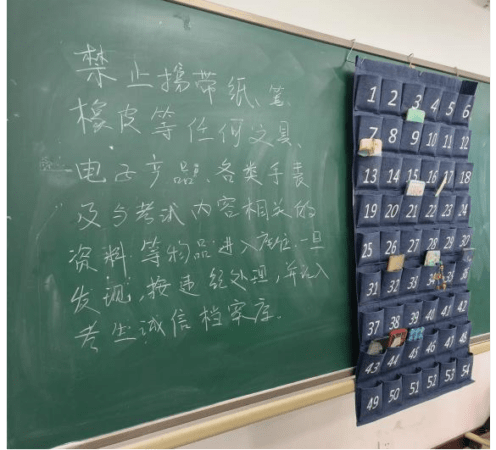 禁止携带纸、笔、
橡皮等任何文具、
电子产品、各类手表
及与考试内容相关的
资料等物品进入座位,一旦
发现,按违纪处理,并记入
考生诚信档案库.
1 2 3 4 5 6
7 8 9 10 11 12
13 14 15 16 17 18
19 20 21 22 23 24
25 26 27 28 29 30
31 32 33 34 35 36
37 38 39 40 41 42
43 44 45 46 47 48
49 50 51 52 53 54